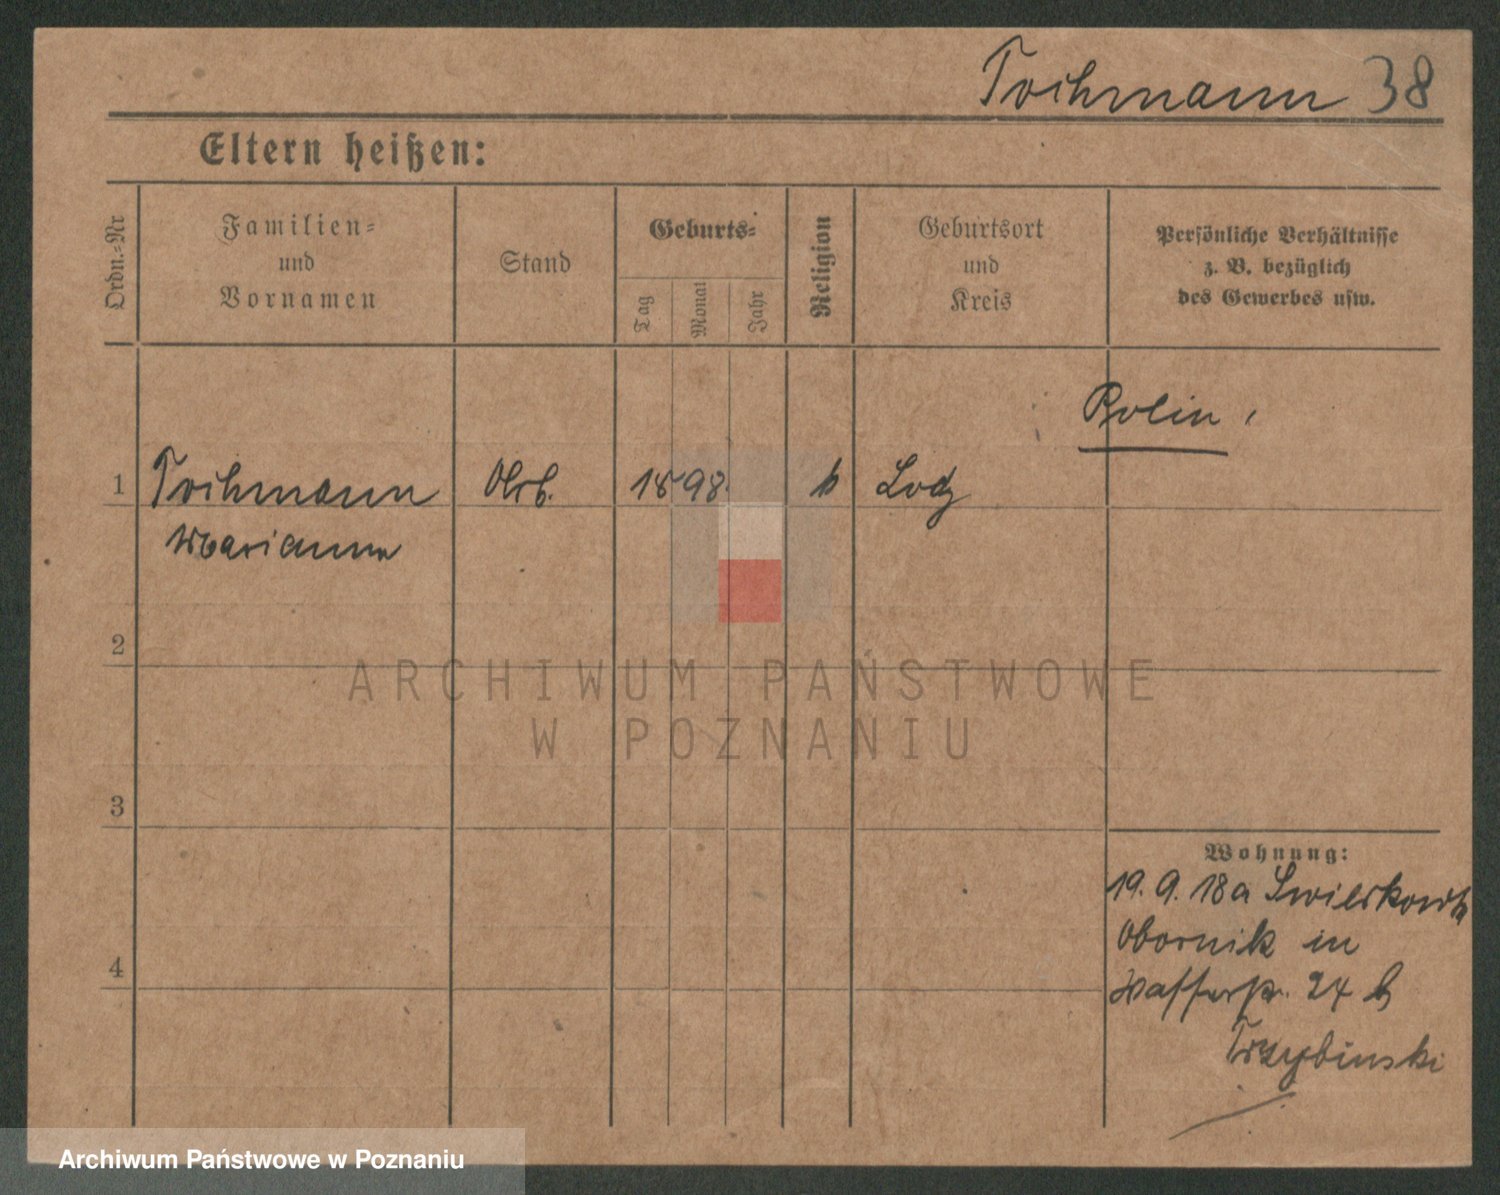 Tochmann 38
Eltern heißen:
Ordn.-Nr
Familien-
und
Vornamen
Stand
Geburts-
Tag
Monat
Jahr
Religion
Geburtsort
und
Kreis
Persönliche Verhältnisse
z. B. bezüglich
des Gewerbes usw.
1 Tochmann Arb. 1898 k Lodz
Marianna
2
3
4
Wohnung:
19. 9. 18 a
Obornik in
Wasserstr. 24 b
Trzybinski
ARCHIWUM PAŃSTWOWE
W POZNANIU
Archiwum Państwowe w Poznaniu